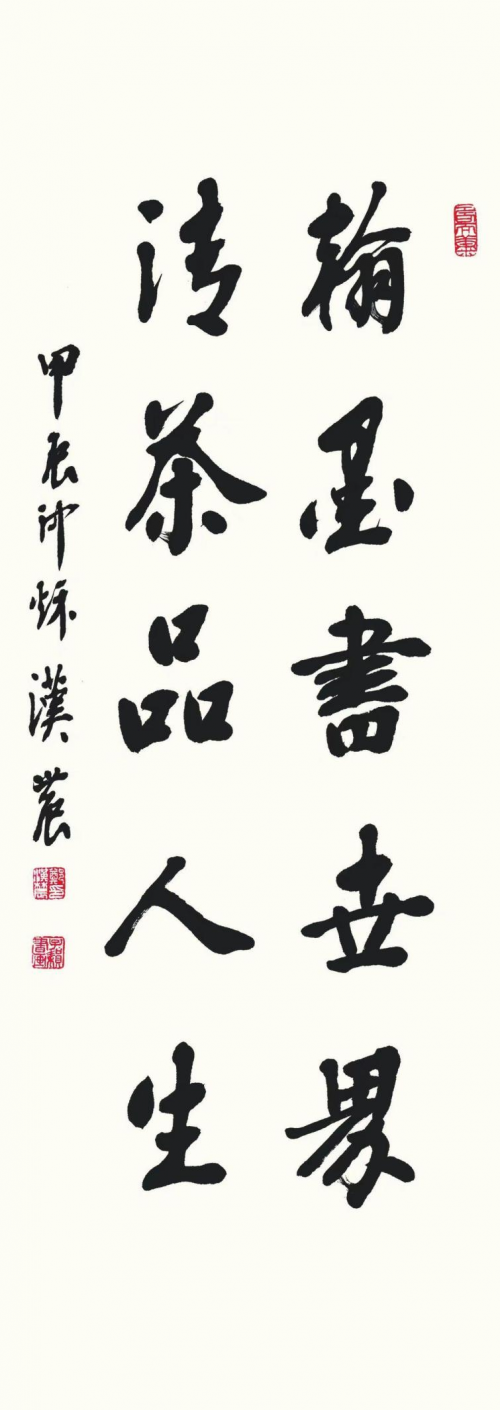 翰墨書世界
清茶品人生
甲辰仲秌漢農